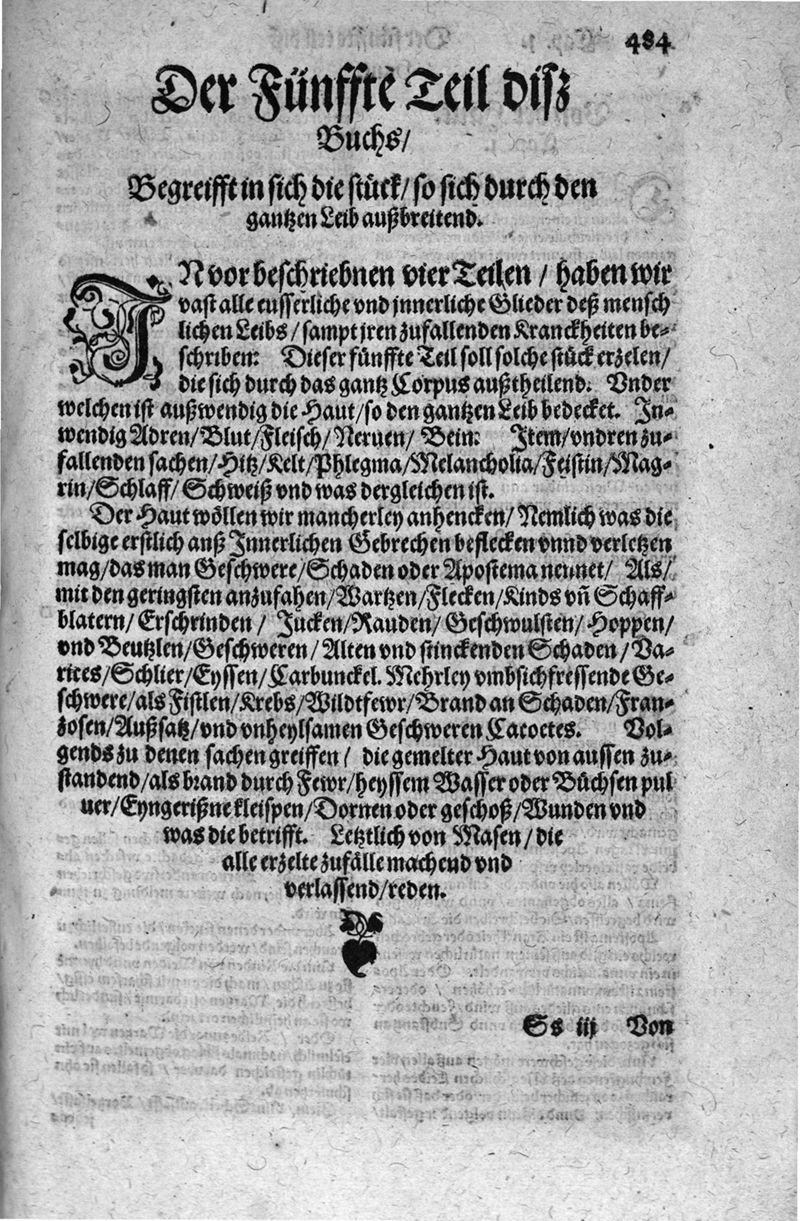 484
Der Fünffte Teil disz
Buchs/
Begreifft in sich die stück/ so sich durch den
gantzen Leib außbreitend.
IN vor beschriebnen vier Teilen / haben wir
vast alle eusserliche vnd jnnerliche Glieder deß mensch
lichen Leibs / sampt jren zufallenden Kranckheiten be-
schriben: Dieser fünffte Teil soll solche stück erzelen/
die sich durch das gantz Corpus außtheilend. Vnder
welchen ist außwendig die Haut/ so den gantzen Leib bedecket. In-
wendig Adren/ Blut/ Fleisch/ Neruen/ Bein: Item/ vndren zu-
fallenden sachen/ Hitz/ Kelt/ Phlegma/ Melancholia/ Feistin/ Mag-
rin/ Schlaff/ Schweiß vnd was dergleichen ist.
Der Haut wöllen wir mancherley anhencken/ Nemlich was die
selbige erstlich auß Innerlichen Gebrechen beflecken vnnd verletzen
mag/ das man Geschwere/ Schaden oder Apostema nennet/ Als/
mit den geringsten anzufahen/ Wartzen/ Flecken/ Kinds vñ Schaff-
blatern/ Erschrinden / Jucken/ Rauden/ Geschwulsten/ Hoppen/
vnd Beutzlen/ Geschweren/ Alten vnd stinckenden Schaden/ Va-
rices/ Schlier/ Eyssen/ Carbunckel. Mehrley vmbsichfressende Ge-
schwere/ als Fistlen/ Krebs/ Wildtfewr/ Brand an Schaden/ Fran-
zosen/ Außsatz/ vnd vnheylsamen Geschweren Cacoetes. Vol-
gends zu denen sachen greiffen / die gemelter Haut von aussen zu-
standend/ als brand durch Fewr/ heyssem Wasser oder Büchsen pul
uer/ Eyngerißne kleispen/ Dornen oder geschoß/ Wunden vnd
was die betrifft. Letztlich von Masen/ die
alle erzelte zufälle machend vnd
verlassend/ reden.
Ss iij Von